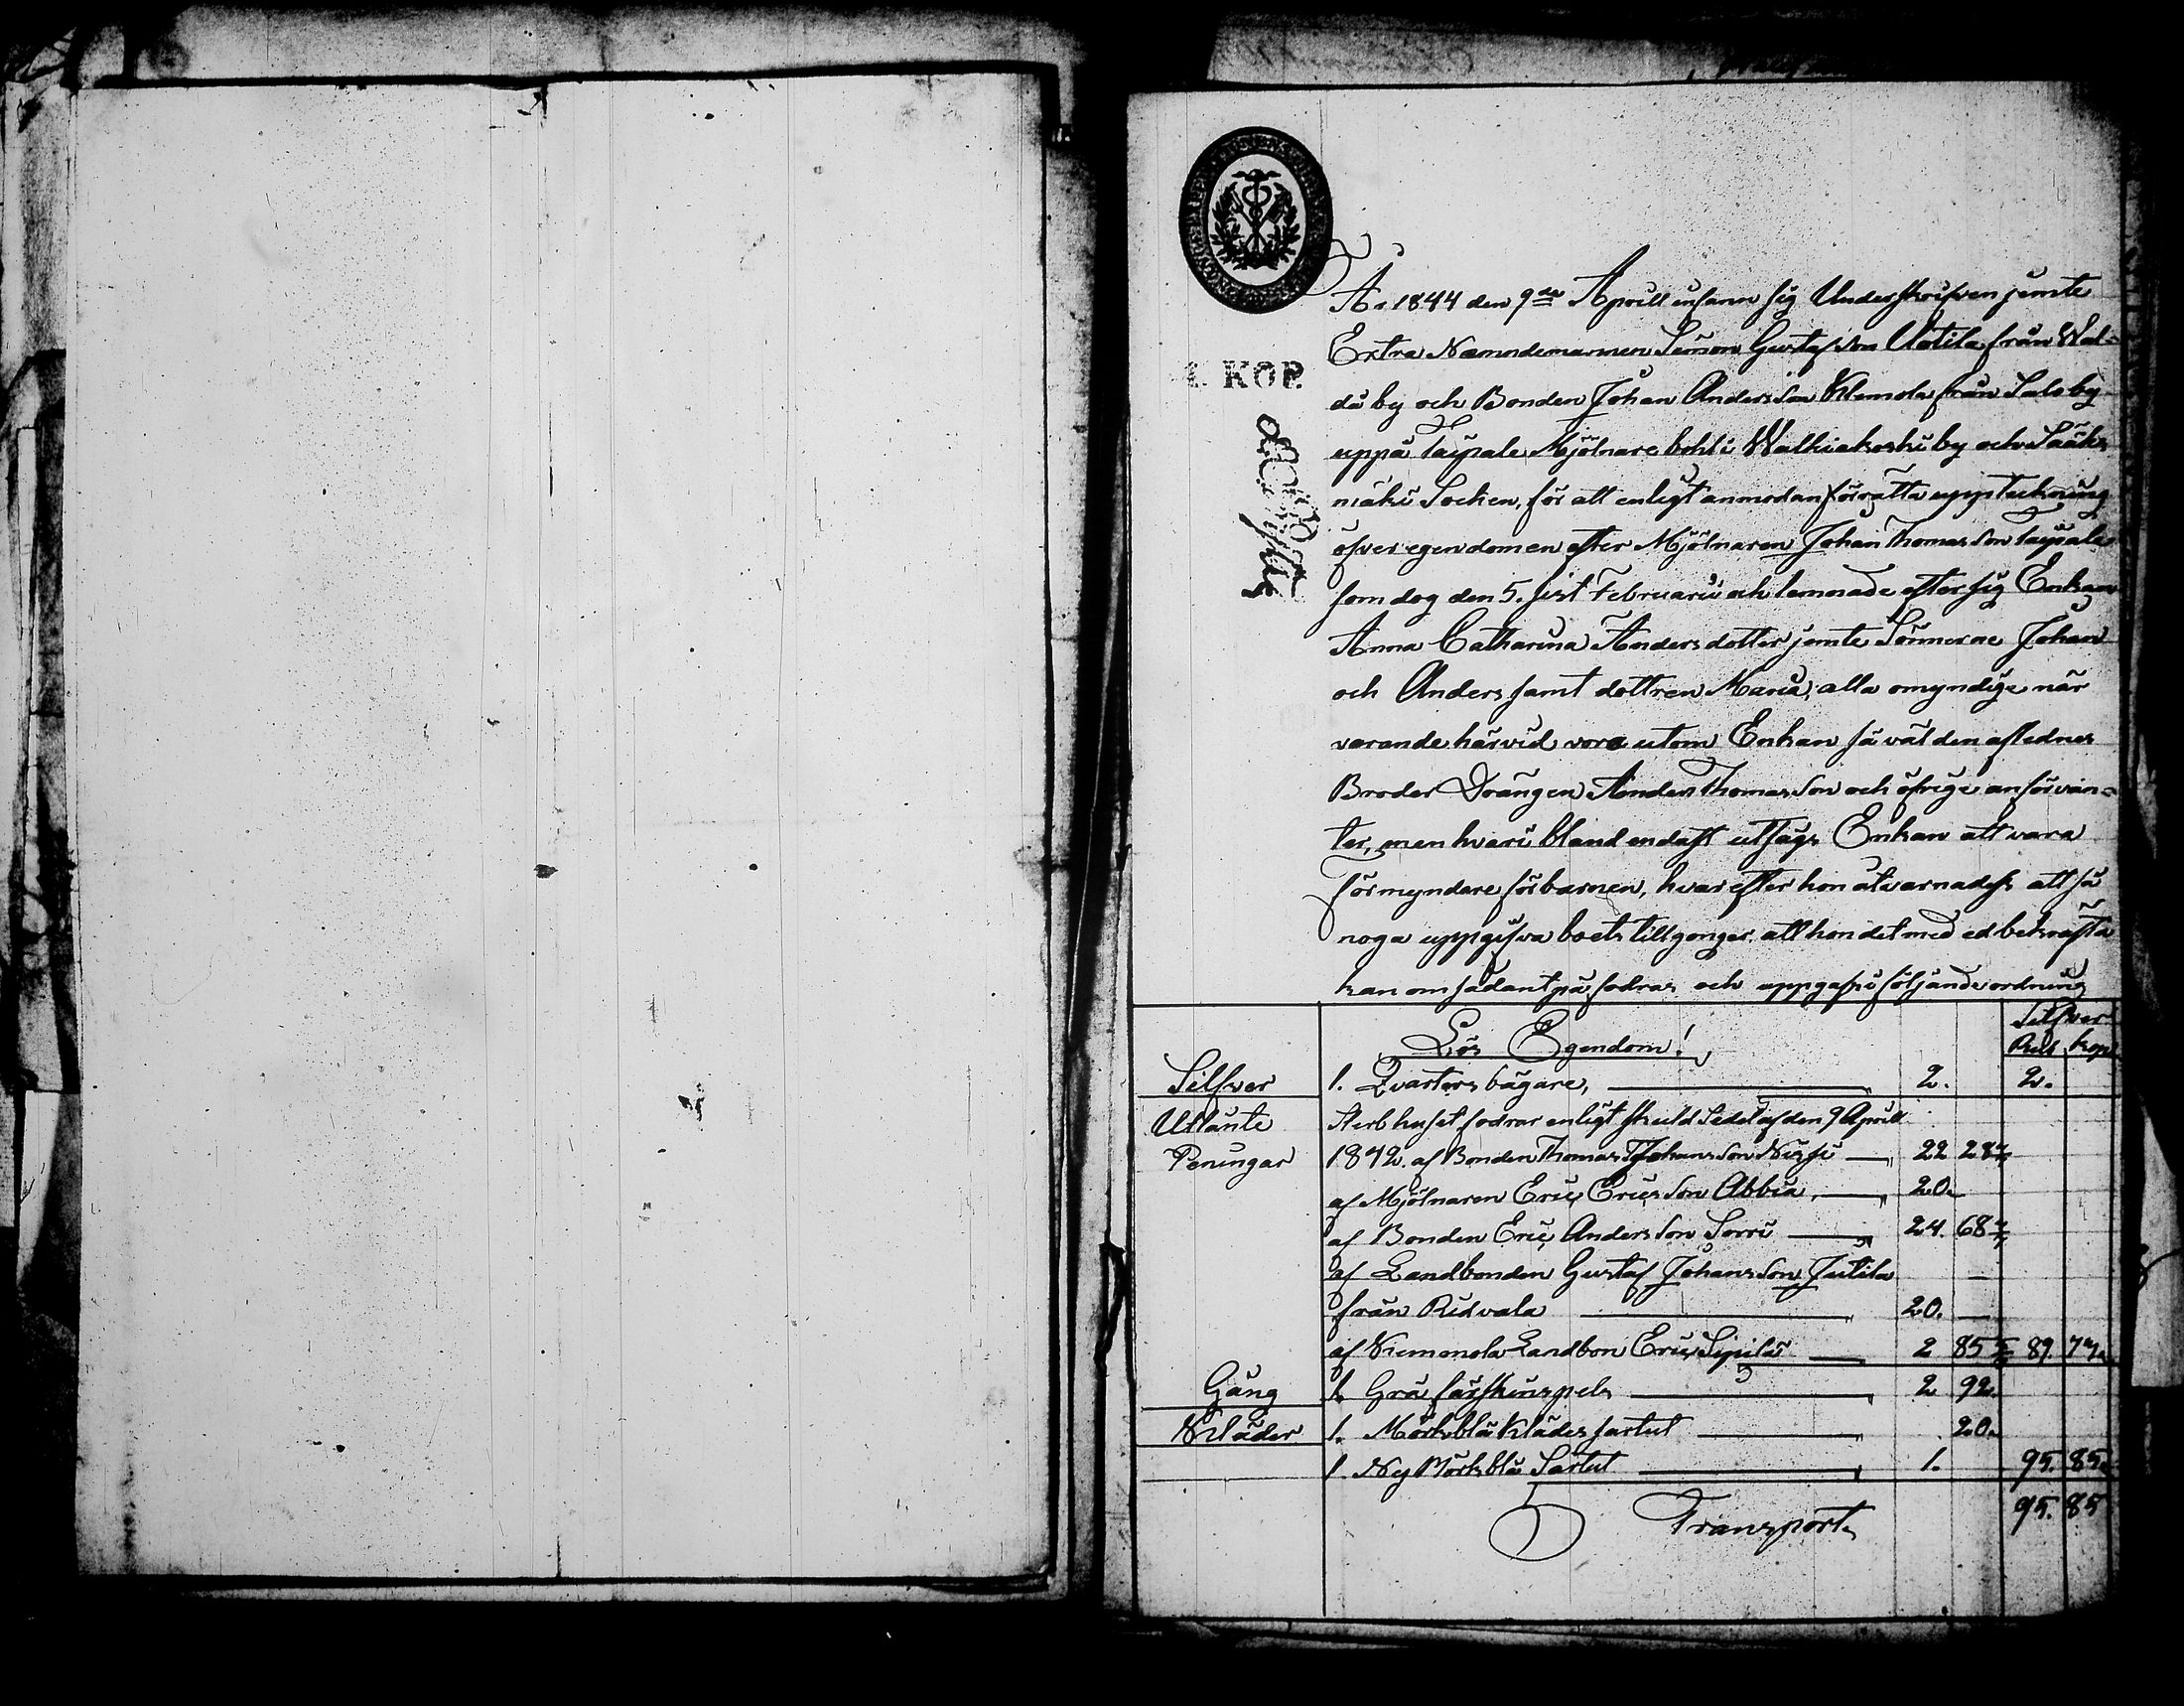 1. KOP.
År 1844 den 9de Aprill infann sig Underskrifven jemte
Extra Nämndemannen Simon Gustafsson Uotila från Wal-
da by och Bonden Johan Andersson Klemola från Salo by
uppå Taipale Mjölnare bohl i Walkiakoski by och Sääks-
mäki Socken, för att enligt anmodan förrätta uppteckning
öfver egendomen efter Mjölnaren Johan Thomasson Taipale
som dog den 5. sist Februarii och lemnade efter sig Enkan
Anna Catharina Andersdotter jemte Sönnerne Johan
och Anders samt dottren Maria, alla omyndige när
varande härvid voro utom Enkan så väl den aflednes
Broder Drängen Anders Thomasson och öfrige anförvan-
ter, men hvaribland endast utsågs Enkan att vara
förmyndare för barnen, hvarefter hon åtvarnades att så
noga uppgifva boets tillgonger att hon det med ed bekräfta
kan om sådant på fodras och uppgafs i följande ordning
Lös Egendom!
Silfver
Rub. kop.
Silfver 1. Qvarters bägare, 2. 2.
Utlänte Sterbhuset fodrar enligt skuld Sedel af den 9 Aprill
Peningar 1842. af Bonden Thomas Johansson Nissi 22 28 4/7
af Mjölnaren Eric Ericsson Abbia, 20. —
af Bonden Eric Andersson Sorri 24. 68 4/7
af Landbonden Gustaf Johansson Jutila —
från Ridvala 20. —
af Niemenola Landbon Eric Sipilä 2 85 5/7 89.
Gång 1. Grå fårskinspels 2 92.
Kläder 1. Mörkblå Klädes surtut 20.
1. Ny Mörkblå Surtut 1. 95. 85.
Transport. 95. 85